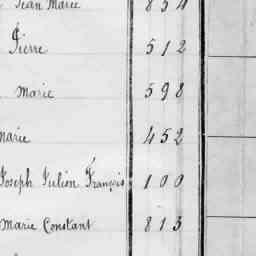 Jean Marie 854
Pierre 512
Marie 598
Marie 452
Joseph Julien François 100
Marie Constant 813